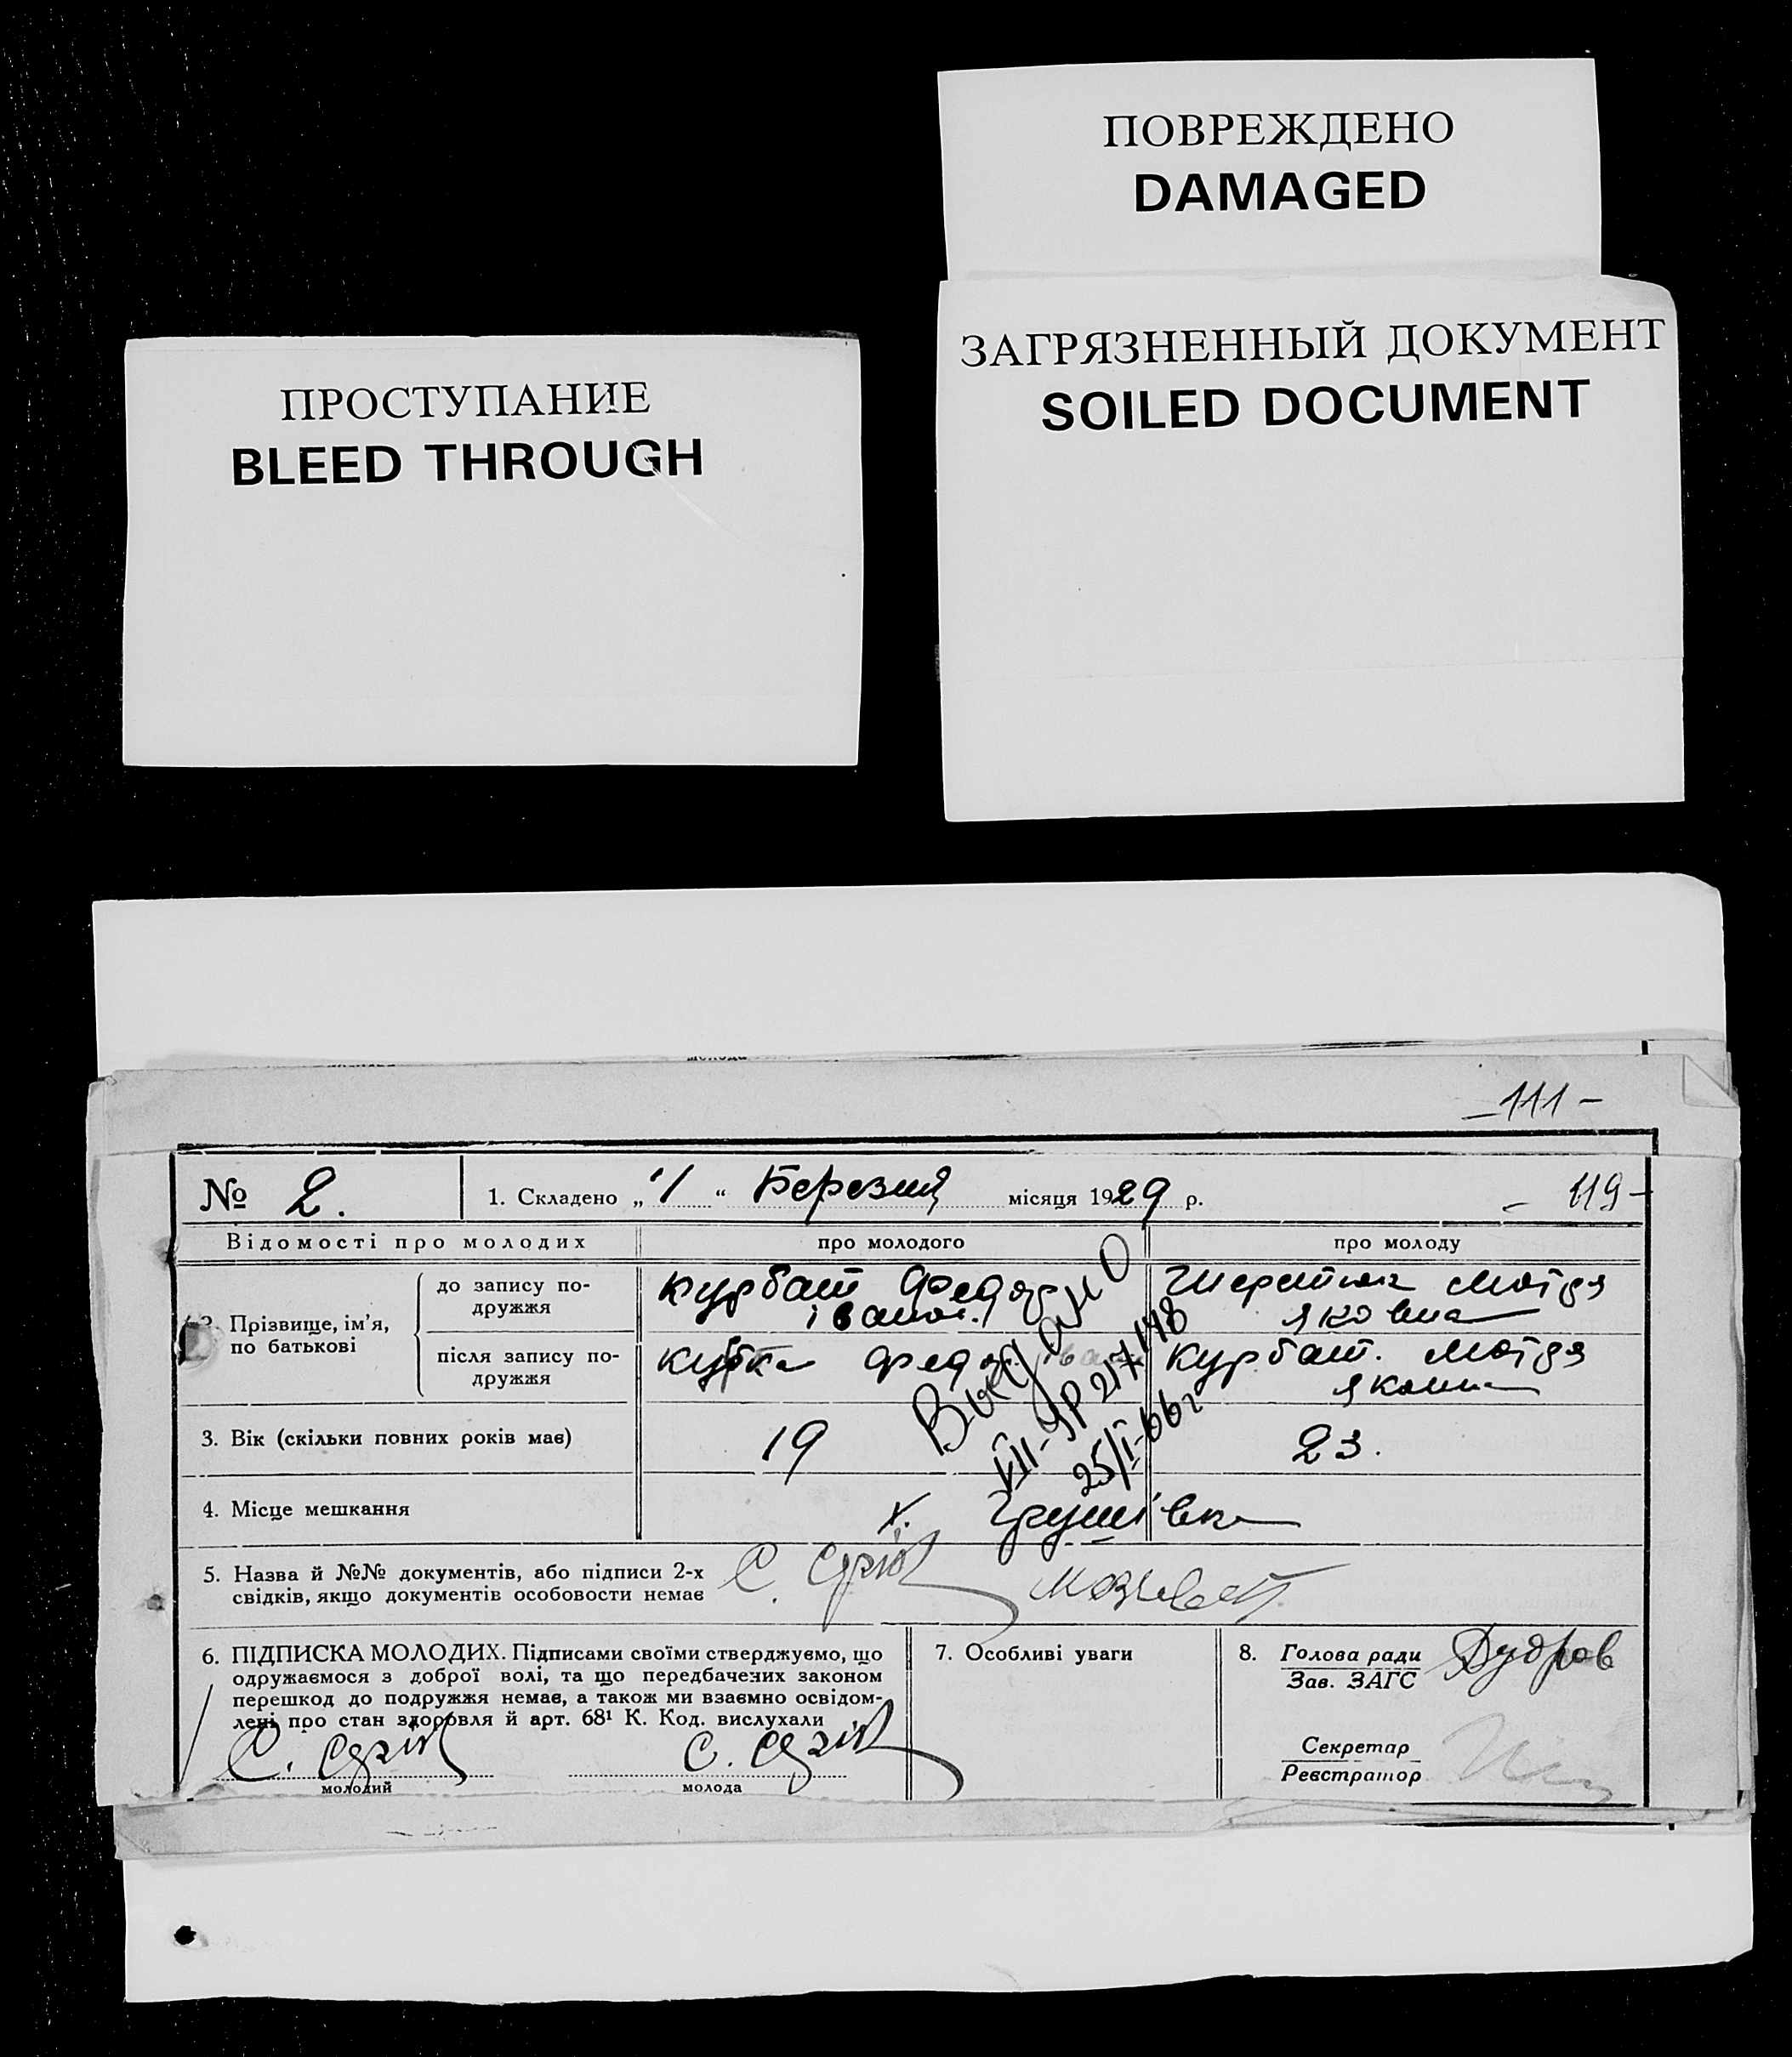 ПОВРЕЖДЕНО
DAMAGED
ЗАГРЯЗНЕННЫЙ ДОКУМЕНТ
SOILED DOCUMENT
ПРОСТУПАНИЕ
BLEED THROUGH
-111-
№ 2.
1. Складено „1“ Березня місяця 1929 р.
- 119 -
Відомості про молодих
про молодого
про молоду
2. Прізвище, ім’я,
по батькові
до запису по-
дружжя
Курбат Федор
Іванов.
Шереметюк Мотря
Яковна
після запису по-
дружжя
Федор Іван
Курбат. Мотря
Выдано
VIII-ЯР 217148
25/I-66г
3. Вік (скільки повних років має)
19
23.
4. Місце мешкання
х. Грушівка
5. Назва й №№ документів, або підписи 2-х
свідків, якщо документів особовости немає
6. ПІДПИСКА МОЛОДИХ. Підписами своїми стверджуємо, що
одружаємося з доброї волі, та що передбачених законом
перешкод до подружжя немає, а також ми взаємно освідом-
лені про стан здоровля й арт. 68¹ К. Код. вислухали
молодий
молода
7. Особливі уваги
8. Голова ради
Зав. ЗАГС
Секретар
Реєстратор